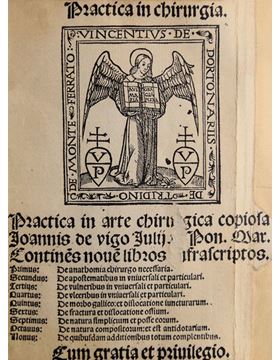 Practica in chirurgia.
VINCENTIVS · DE · PORTONARIIS ·
DE · TRIDINO
DE · MONTE · FERRATO ·
V P
V P
Practica in arte chirurgica copiosa
Joannis de vigo Julij Pon. Max.
Continẽs nouẽ libros infrascriptos.
Primus: De anathomia chirurgo necessaria.
Secundus: De apostematibus in vniuersali et particulari.
Tertius: De vulneribus in vniuersali et particulari.
Quartus: De vlceribus in vniuersali et particulari.
Quintus: De morbo gallico: et dislocatione iuncturarum.
Sextus: De fractura et dislocatione ossium.
Septimus: De natura simplicium et posse eorum.
Octauus: De natura compositorum: et est antidotarium.
Nonus: De quibusdam additionibus totum complentibus.
Cum gratia et priuilegio.